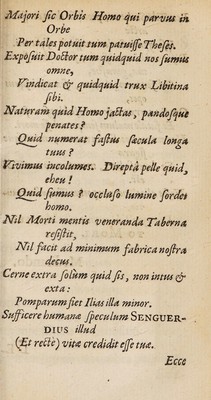 Majori sic Orbis Homo qui parvus in
Orbe
Per tales potuit tum patuisse Theses.
Exposuit Doctor tum quidquid nos sumus
omne,
Vindicat & quidquid trux Libitina
sibi.
Naturam quid Homo jactas, pandosque
penates?
Quid numerat fastus sæcula longa
tuus?
Vivimus incolumes. Direptâ pelle quid,
eheu!
Quid sumus? occluso lumine sordet
homo.
Nil Morti mentis veneranda Taberna
resistit,
Nil facit ad minimum fabrica nostra
decus.
Cerne extra solùm quid sis, non intus &
exta:
Pomparum fiet Ilias illa minor.
Sufficere humanæ speculum SENGUER-
DIUS illud
(Et rectè) vitæ credidit esse tuæ.
Ecce